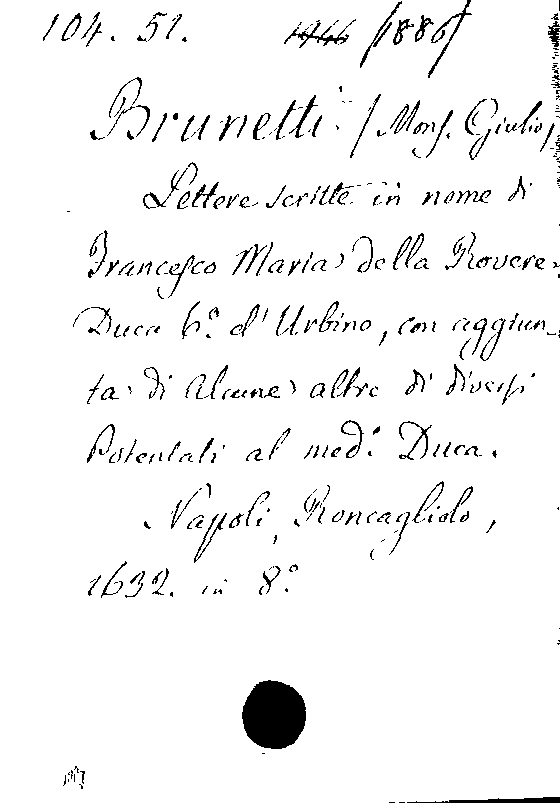 104. 51. 1946 /1886/
Brunetti /Mons. Giulio/
Lettere scritte in nome di
Francesco Maria della Rovere
Duca 6.º d'Urbino, con aggiun-
ta di alcune altre di diversi
Potentati al med.º Duca.
Napoli, Roncagliolo,
1632. in 8.º